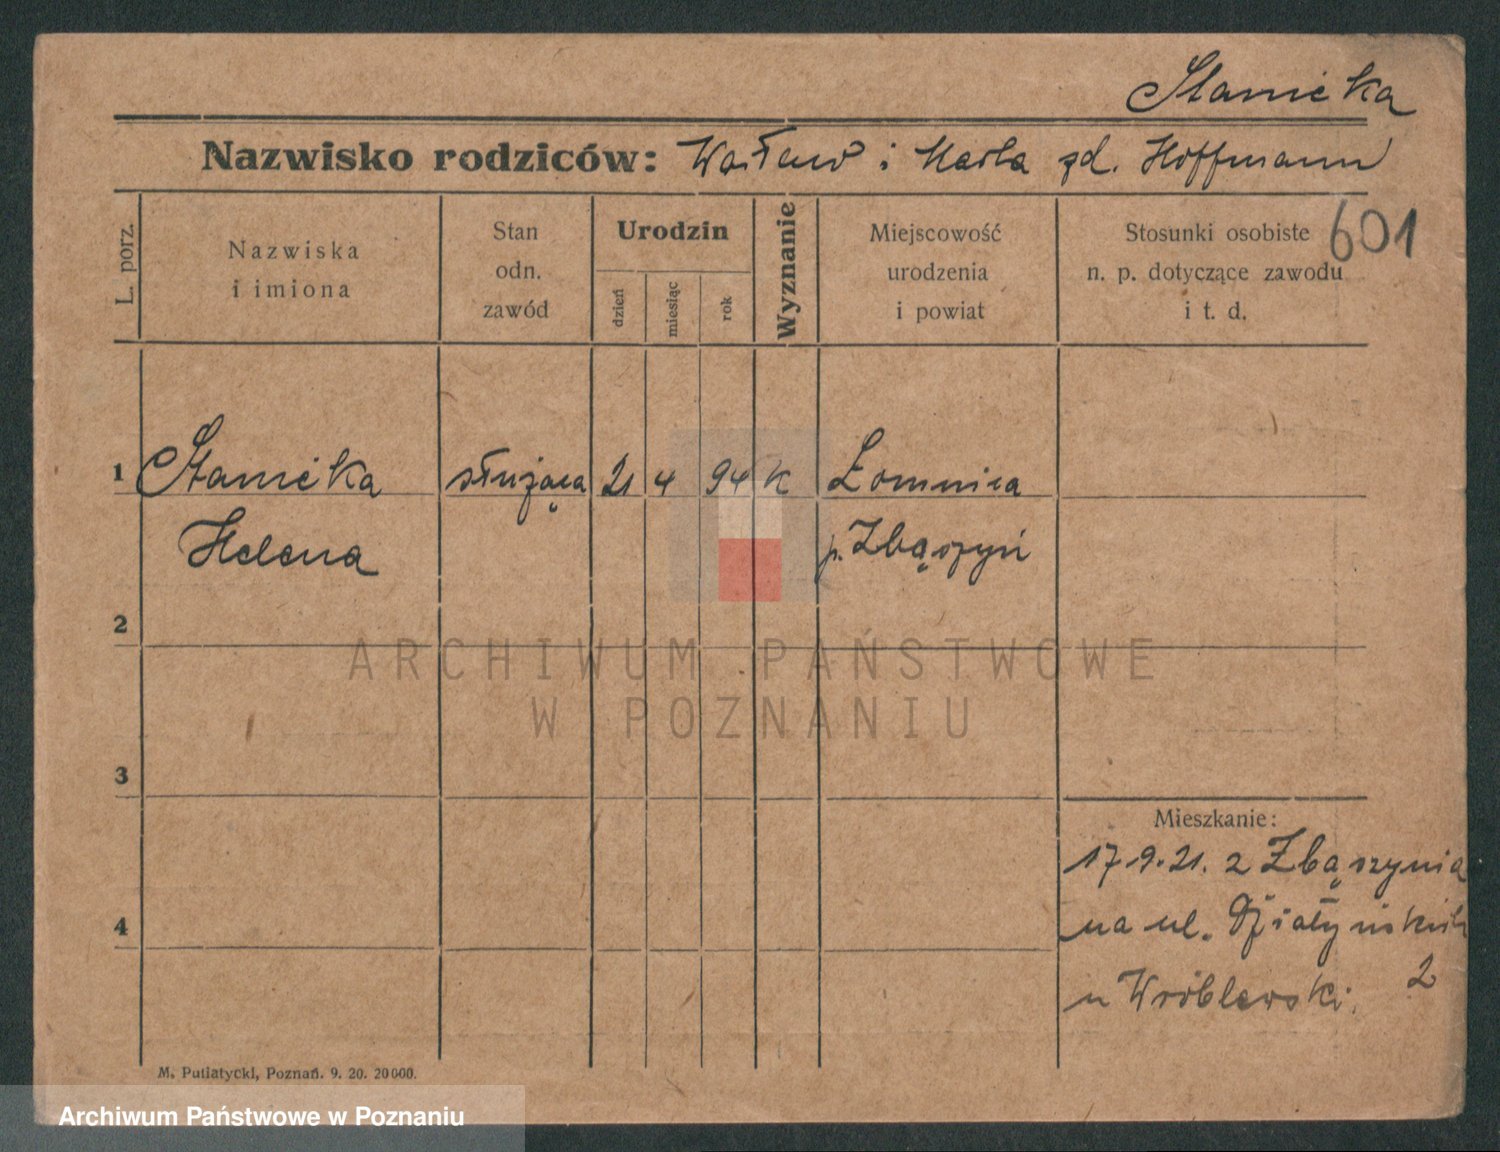 Stanicka
Nazwisko rodziców: Wacław i Marta zd. Hoffmann
601
L. porz.
Nazwiska
i imiona
Stan
odn.
zawód
Urodzin
dzień
miesiąc
rok
Wyznanie
Miejscowość
urodzenia
i powiat
Stosunki osobiste
n. p. dotyczące zawodu
i t. d.
1 Stanicka służąca 21 4 94 K Łomnica
Helena p. Zbąszyń
2
3
4
Mieszkanie:
17.9.21. z Zbąszynia
na ul. Działyńskich
2
u Wróblewski.
M. Putiatycki, Poznań. 9. 20. 20000.
ARCHIWUM PAŃSTWOWE
W POZNANIU
Archiwum Państwowe w Poznaniu